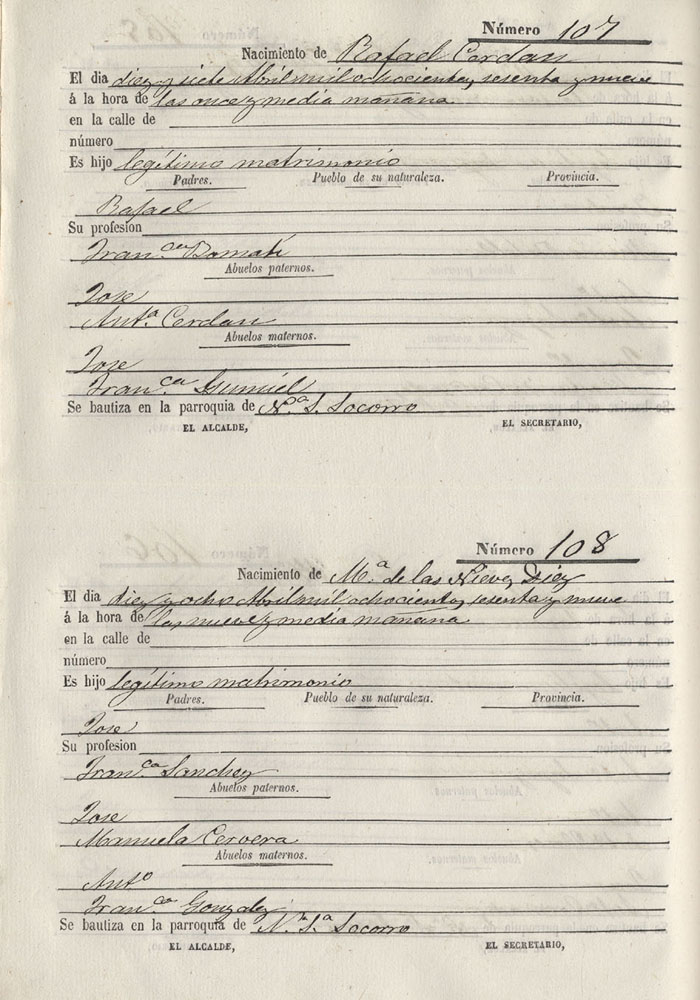 Número 107
Nacimiento de Rafael Cerdan
El dia diez y siete Abril mil ochocientos sesenta y nueve
á la hora de las once y media mañana
en la calle de
número
Es hijo legítimo matrimonio
Padres. Pueblo de su naturaleza. Provincia.
Rafael
Su profesion
Fran.ca Domati
Abuelos paternos.
Jose
Ant.a Cerdan
Abuelos maternos.
Jose
Fran.ca Gumiel
Se bautiza en la parroquia de N.a S. Socorro
EL ALCALDE, EL SECRETARIO,
Número 108
Nacimiento de M.a de las Nieves Diez
El dia diez y ocho Abril mil ochocientos sesenta y nueve
á la hora de las nueve y media mañana
en la calle de
número
Es hijo legítimo matrimonio
Padres. Pueblo de su naturaleza. Provincia.
Jose
Su profesion
Fran.ca Sanchez
Abuelos paternos.
Jose
Manuela Cervera
Abuelos maternos.
Ant.o
Fran.ca Gonzalez
Se bautiza en la parroquia de N.a S.a Socorro
EL ALCALDE, EL SECRETARIO,